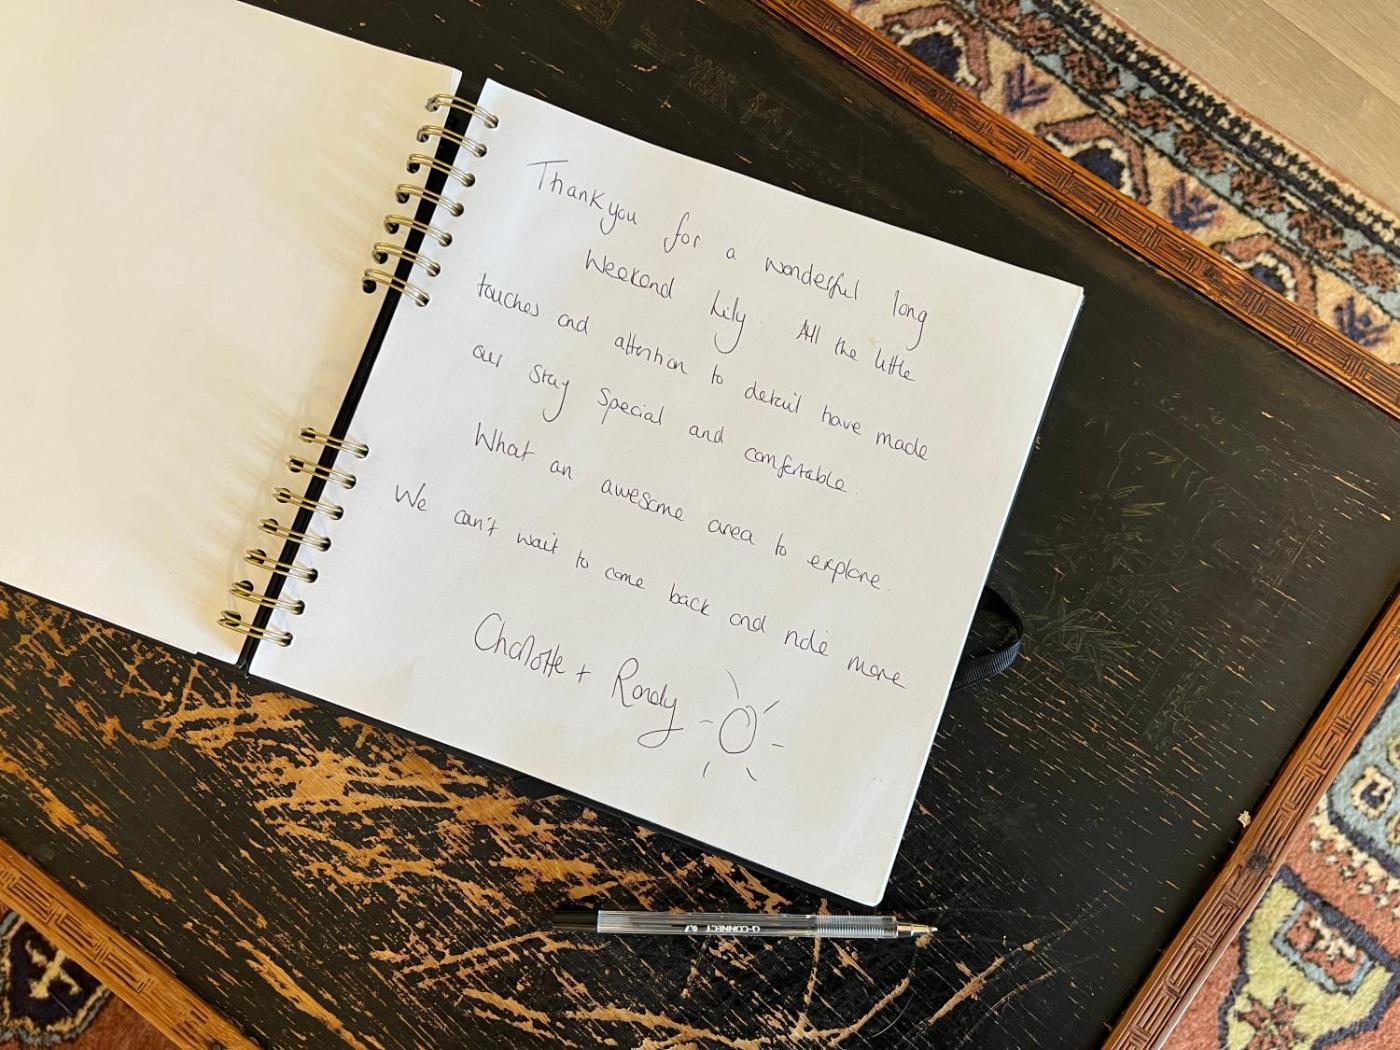 Thankyou for a wonderful long
Weekend Lily. All the little
touches and attention to detail have made
our stay special and comfortable.
What an awesome area to explore.
We can't wait to come back and ride more
Charlotte + Randy
Q-CONNECT 0.7